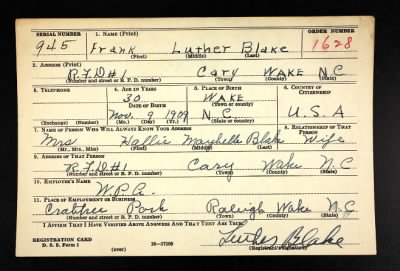 SERIAL NUMBER 1. NAME (Print) ORDER NUMBER
945 Frank Luther Blake 1628
(First) (Middle) (Last)
2. ADDRESS (Print)
R.F.D#1 Cary WAKE N.C
(Number and street or R. F. D. number) (Town) (County) (State)
3. TELEPHONE 4. AGE IN YEARS 5. PLACE OF BIRTH 6. COUNTRY OF CITIZENSHIP
30 WAKE
DATE OF BIRTH (Town or county)
Nov. 9 1909 N.C. U.S.A
(Exchange) (Number) (Mo.) (Day) (Yr.) (State or country)
7. NAME OF PERSON WHO WILL ALWAYS KNOW YOUR ADDRESS 8. RELATIONSHIP OF THAT PERSON
Mrs Hallie Maybelle Blake Wife
(Mr., Mrs., Miss) (First) (Middle) (Last)
9. ADDRESS OF THAT PERSON
R.F.D#1 Cary Wake N.C
(Number and street or R. F. D. number) (Town) (County) (State)
10. EMPLOYER'S NAME
W.P.A.
11. PLACE OF EMPLOYMENT OR BUSINESS
Crabtree Park Raleigh Wake N.C.
(Number and street or R. F. D. number) (Town) (County) (State)
I AFFIRM THAT I HAVE VERIFIED ABOVE ANSWERS AND THAT THEY ARE TRUE.
REGISTRATION CARD Luther Blake
D. S. S. Form 1 (over) 16-17105 (Registrant's signature)